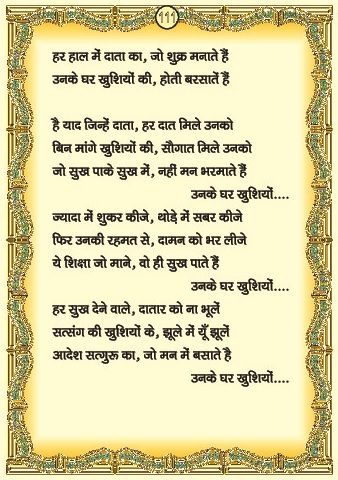 111
हर हाल में दाता का, जो शुक्र मनाते हैं
उनके घर खुशियों की, होती बरसातें हैं
है याद जिन्हें दाता, हर दात मिले उनको
बिन मांगे खुशियों की, सौगात मिले उनको
जो सुख पाके सुख में, नहीं मन भरमाते हैं
उनके घर खुशियों....
ज्यादा में शुकर कीजे, थोड़े में सबर कीजे
फिर उनकी रहमत से, दामन को भर लीजे
ये शिक्षा जो माने, वो ही सुख पाते हैं
उनके घर खुशियों....
हर सुख देने वाले, दातार को ना भूलें
सत्संग की खुशियों के, झूले में यूँ झूलें
आदेश सत्गुरू का, जो मन में बसाते है
उनके घर खुशियों....